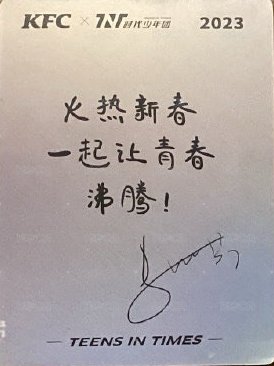 KFC × TNT时代少年团 2023
火热新春
一起让青春
沸腾！
— TEENS IN TIMES —